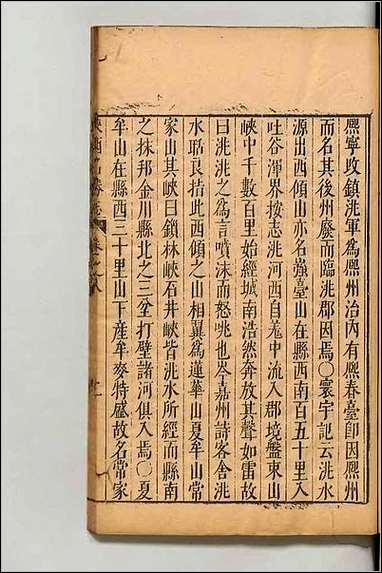 熙寧收鎮洮軍爲熙州治內有熙春臺卽因熙州
而名其後州廢而臨洮郡因焉〇寰宇記云洮水
源出西傾山亦名强臺山在縣西南百五十里入
吐谷渾界按志洮河西自羌中流入郡境盤束山
峽中千數百里始經城南浩然奔放其聲如雷故
曰洮洮之爲言噴沫而怒咷也岑嘉州詩客舍洮
水聒艮指此西傾之山相翼爲蓮華山夏牟山常
家山其峽曰鎖林峽石井峽皆洮水所經而縣南
之抹邦金川縣北之三坌打壁諸河俱入焉〇夏
牟山在縣西三十里山下產牟麥特盛故名常家